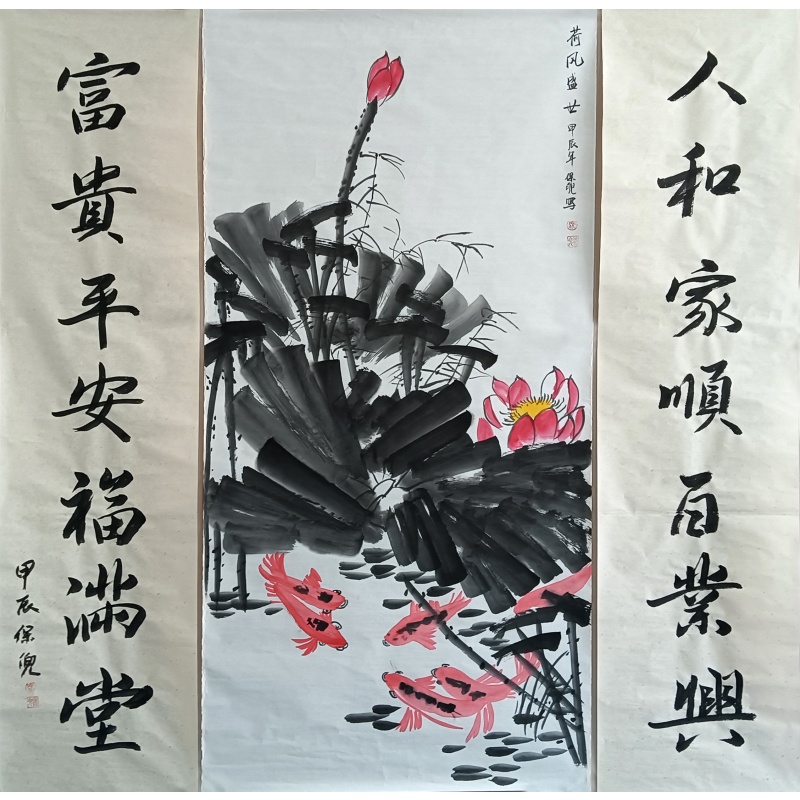 人和家順百業興
荷风盛世 甲辰年 保倪写
富貴平安福满堂
甲辰 保倪